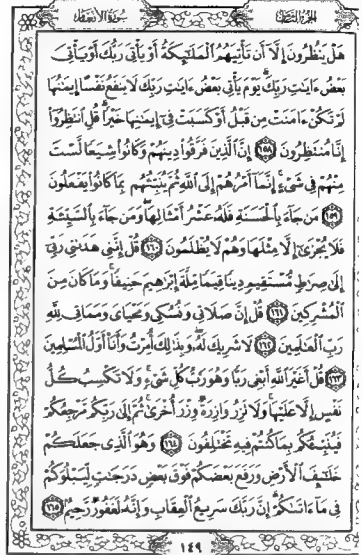 الجزء الثامن
سورة الأنعام
هَلْ يَنظُرُونَ إِلَّآ أَن تَأْتِيَهُمُ ٱلْمَلَٰٓئِكَةُ أَوْ يَأْتِيَ رَبُّكَ أَوْ يَأْتِيَ
بَعْضُ ءَايَٰتِ رَبِّكَ ۗ يَوْمَ يَأْتِي بَعْضُ ءَايَٰتِ رَبِّكَ لَا يَنفَعُ نَفْسًا إِيمَٰنُهَا
لَمْ تَكُنْ ءَامَنَتْ مِن قَبْلُ أَوْ كَسَبَتْ فِيٓ إِيمَٰنِهَا خَيْرًا ۗ قُلِ ٱنتَظِرُوٓا۟
إِنَّا مُنتَظِرُونَ ١٥٨ إِنَّ ٱلَّذِينَ فَرَّقُوا۟ دِينَهُمْ وَكَانُوا۟ شِيَعًا لَّسْتَ
مِنْهُمْ فِي شَيْءٍ ۚ إِنَّمَآ أَمْرُهُمْ إِلَى ٱللَّهِ ثُمَّ يُنَبِّئُهُم بِمَا كَانُوا۟ يَفْعَلُونَ
١٥٩ مَن جَآءَ بِٱلْحَسَنَةِ فَلَهُۥ عَشْرُ أَمْثَالِهَا ۖ وَمَن جَآءَ بِٱلسَّيِّئَةِ
فَلَا يُجْزَىٰٓ إِلَّا مِثْلَهَا وَهُمْ لَا يُظْلَمُونَ ١٦٠ قُلْ إِنَّنِي هَدَىٰنِي رَبِّيٓ
إِلَىٰ صِرَٰطٍ مُّسْتَقِيمٍ دِينًا قِيَمًا مِّلَّةَ إِبْرَٰهِيمَ حَنِيفًا ۚ وَمَا كَانَ مِنَ
ٱلْمُشْرِكِينَ ١٦١ قُلْ إِنَّ صَلَاتِي وَنُسُكِي وَمَحْيَايَ وَمَمَاتِي لِلَّهِ
رَبِّ ٱلْعَٰلَمِينَ ١٦٢ لَا شَرِيكَ لَهُۥ ۖ وَبِذَٰلِكَ أُمِرْتُ وَأَنَا۠ أَوَّلُ ٱلْمُسْلِمِينَ
١٦٣ قُلْ أَغَيْرَ ٱللَّهِ أَبْغِي رَبًّا وَهُوَ رَبُّ كُلِّ شَيْءٍ ۚ وَلَا تَكْسِبُ كُلُّ
نَفْسٍ إِلَّا عَلَيْهَا ۚ وَلَا تَزِرُ وَازِرَةٌ وِزْرَ أُخْرَىٰ ۚ ثُمَّ إِلَىٰ رَبِّكُم مَّرْجِعُكُمْ
فَيُنَبِّئُكُم بِمَا كُنتُمْ فِيهِ تَخْتَلِفُونَ ١٦٤ وَهُوَ ٱلَّذِي جَعَلَكُمْ
خَلَٰٓئِفَ ٱلْأَرْضِ وَرَفَعَ بَعْضَكُمْ فَوْقَ بَعْضٍ دَرَجَٰتٍ لِّيَبْلُوَكُمْ
فِي مَآ ءَاتَىٰكُمْ ۗ إِنَّ رَبَّكَ سَرِيعُ ٱلْعِقَابِ وَإِنَّهُۥ لَغَفُورٌ رَّحِيمٌ ١٦٥
١٤٩